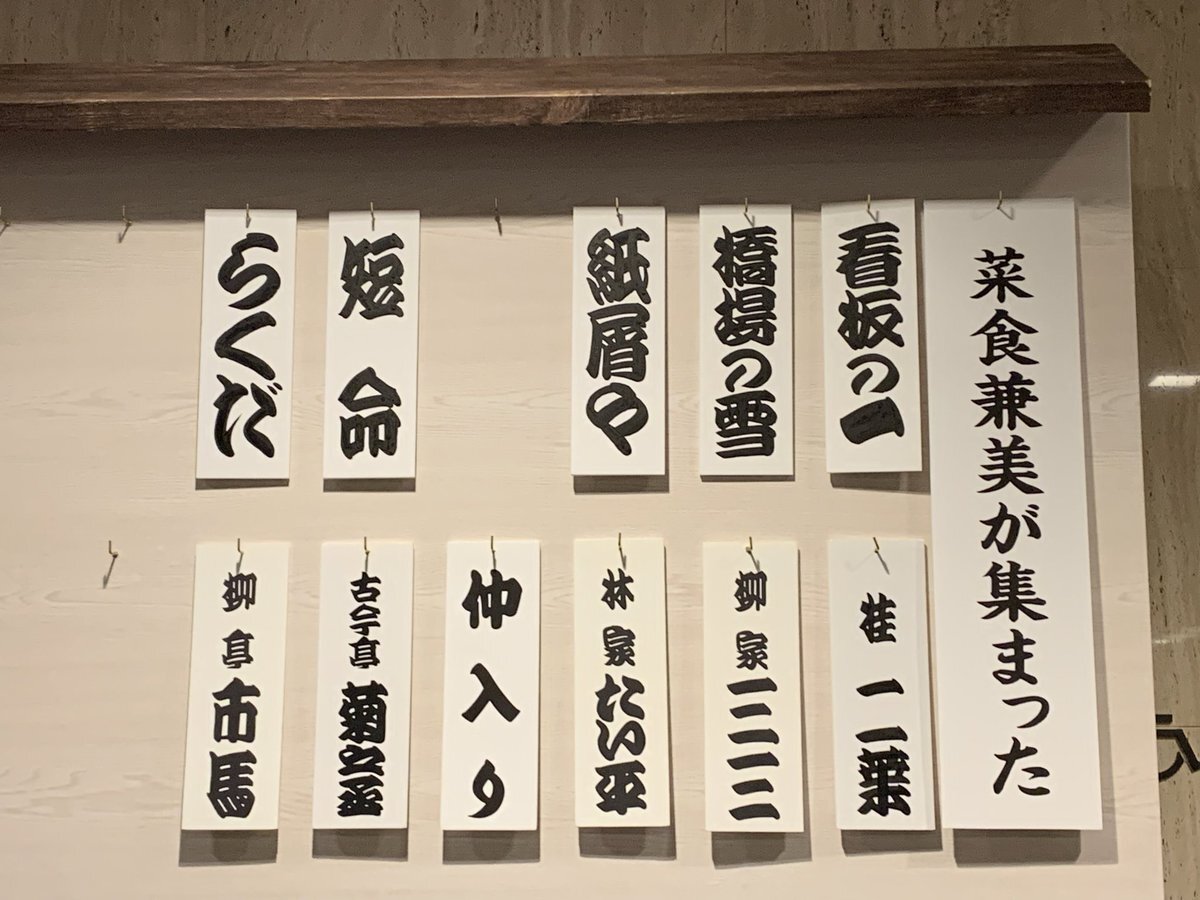 菜食兼美が集まった
看板の一
桂 二葉
橋場の雪
柳家 三三
紙屑や
林家 たい平
仲入り
短命
古今亭 菊之丞
らくだ
柳亭 市馬